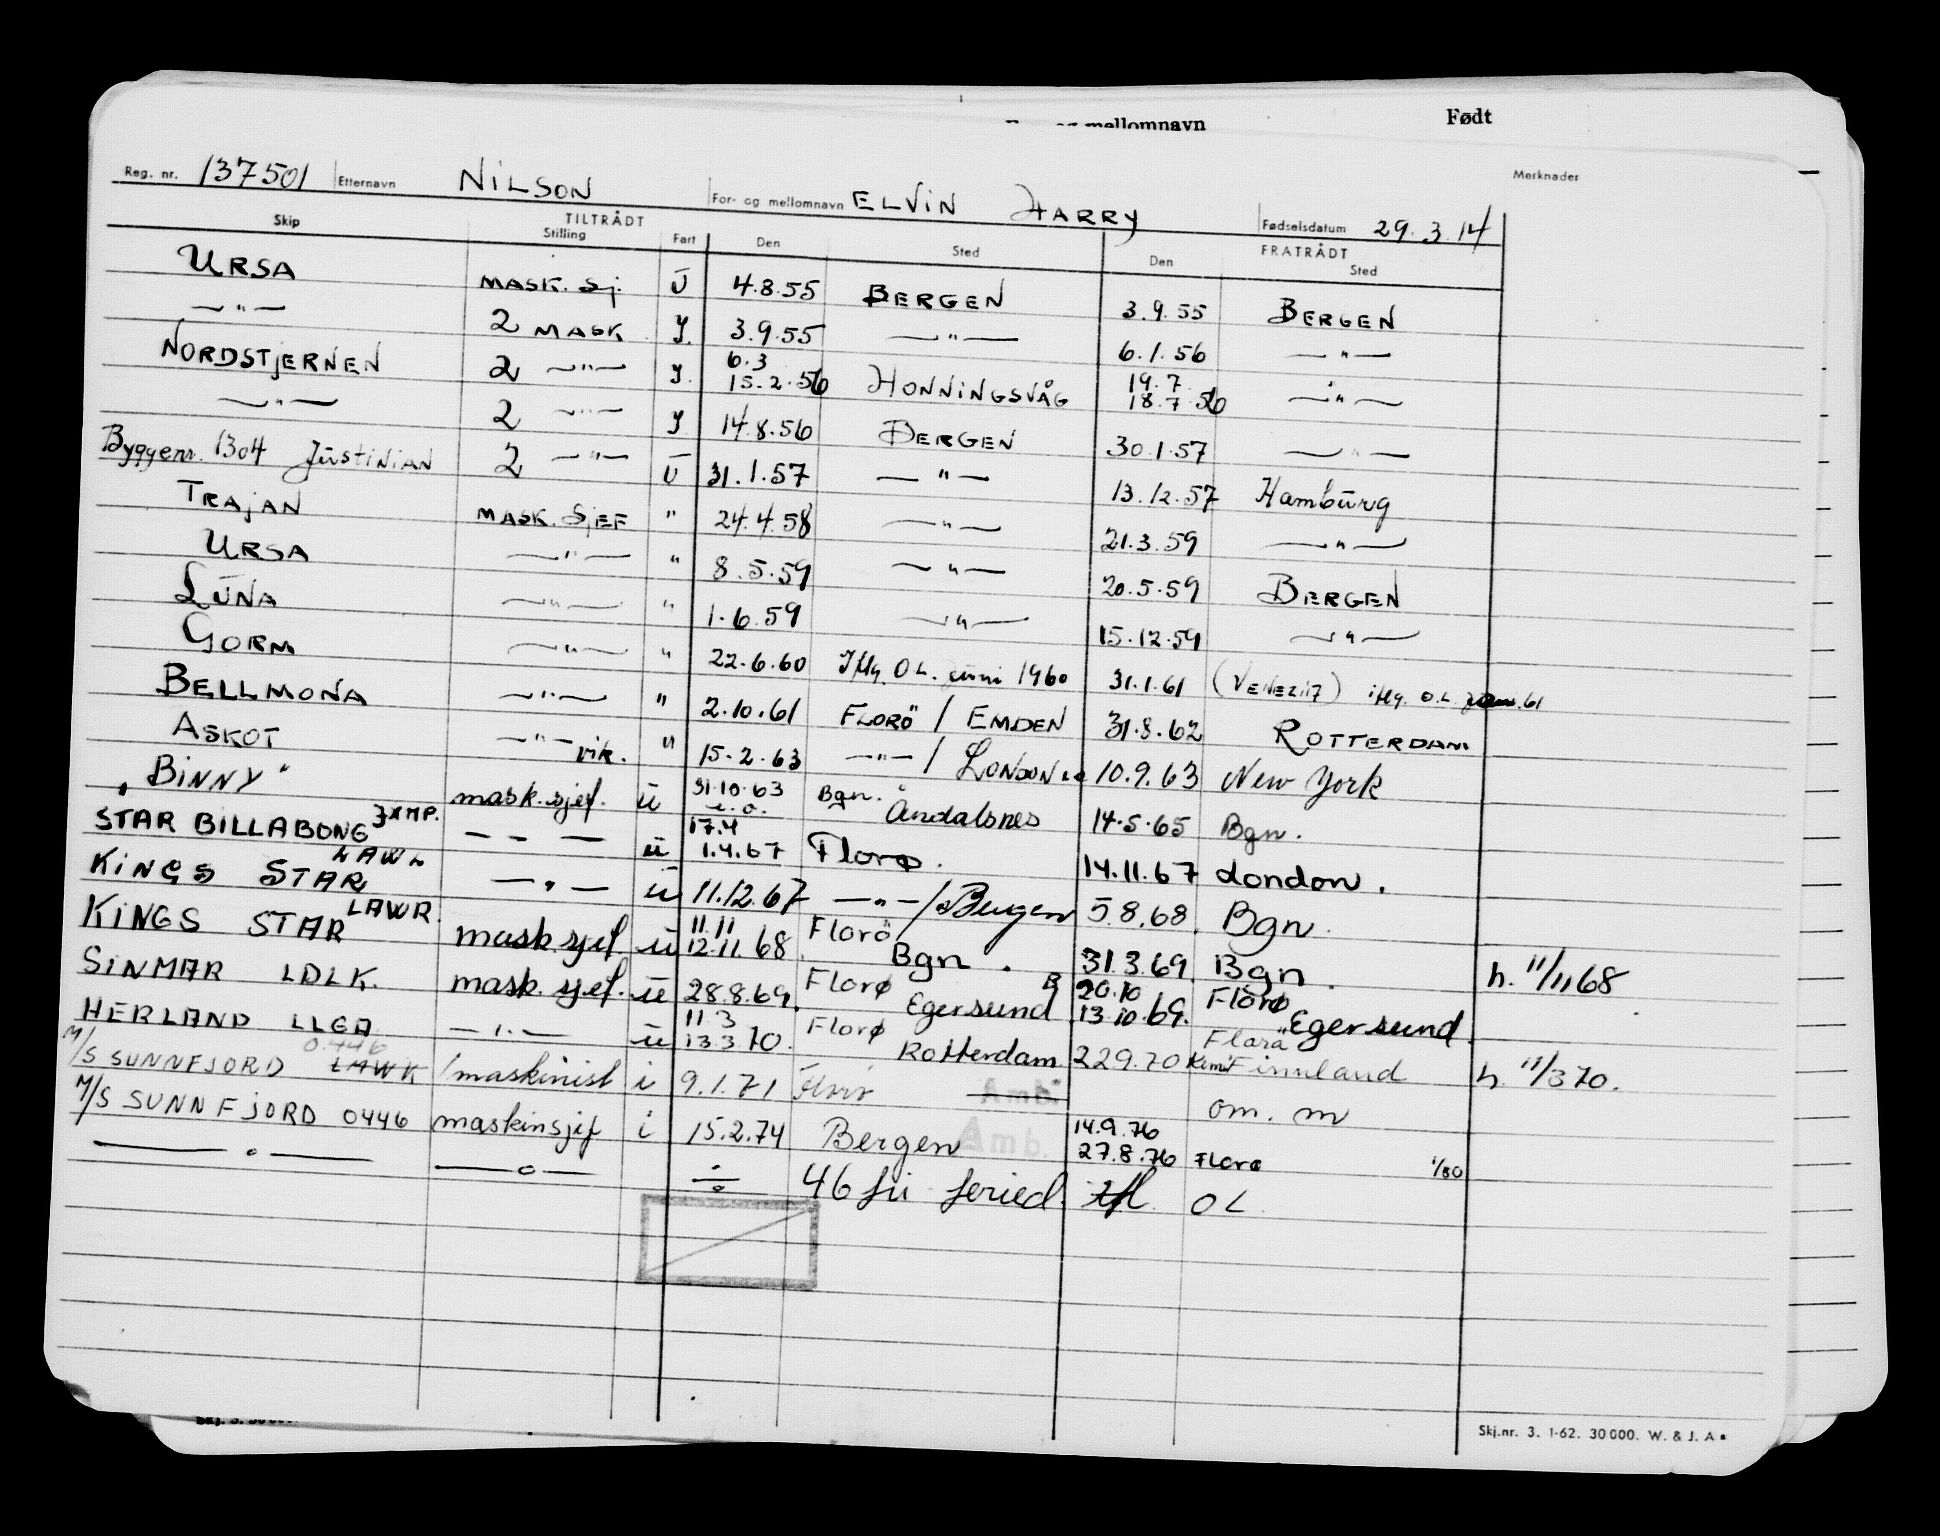 mellomnavn Født
Reg. nr. 137501 Etternavn NILSON For- og mellomnavn ELVIN HARRY Fødselsdatum 29.3.14 Merknader
Skip TILTRÅDT Stilling Fart Den Sted FRATRÅDT Den Sted
URSA MASK. Sj. U 4.8.55 BERGEN 3.9.55 BERGEN
—"— 2 MASK J. 3.9.55 —"— 6.1.56 —"—
NORDSTJERNEN 2 —"— J. 6.3 15.2.56 HONNINGSVÅG 19.7 18.7.56 —"—
—"— 2 —"— J 14.8.56 BERGEN 30.1.57 —"—
Byggenr. 1304 JUSTINIAN 2 —"— U 31.1.57 —"— 13.12.57 Hamburg
TRAJAN MASK. SJEF " 24.4.58 —"— 21.3.59 —"—
URSA —"— " 8.5.59 —"— 20.5.59 BERGEN
LUNA —"— " 1.6.59 —"— 15.12.59 —"—
GORM —"— " 22.6.60 Iflg. O.L. juni 1960 31.1.61 (VENEZIA) iflg. O.L. jan. 61
BELLMONA —"— " 2.10.61 FLORÖ / EMDEN 31.8.62 ROTTERDAM
ASKOT —"— vik. " 15.2.63 —"— / LONDON 10.9.63 New York
"BINNY" mask.sjef. u 31.10.63 u.o. Bgn. Åndalsnes 14.5.65 Bgn.
STAR BILLABONG JXMP. — — — u 17.4 1.4.67 Florø. 14.11.67 London.
KINGS STAR LAWR —"— u 11.12.67 —"—/Bergen 5.8.68. Bgn.
KINGS STAR LAWR. mask sjef. u 11.11 12.11.68 Florö Bgn. 31.3.69. Bgn. h. 11/11 68
SINMAR LDLK. mask. sjef. u 28.8.69. Florø Egersund B 20.10 13.10.69. Florø Egersund.
HERLAND LLGA —"— u 11.3 13.3.70. Florø Rotterdam. 22.9.70 Florø Kemi Finnland h. 11/3 70.
M/S SUNNFJORD 0446 LAWK 1 maskinist i 9.1.71 Florø Amb. om. m
M/S SUNNFJORD 0446 maskinsjef i 15.2.74 Bergen Amb. 14.9.76 27.8.76 Florø 1/80
—o— —o— ÷ 46 fri feried. tfl. OL
Skj.nr. 3. 1-62. 30000. W. & J. A